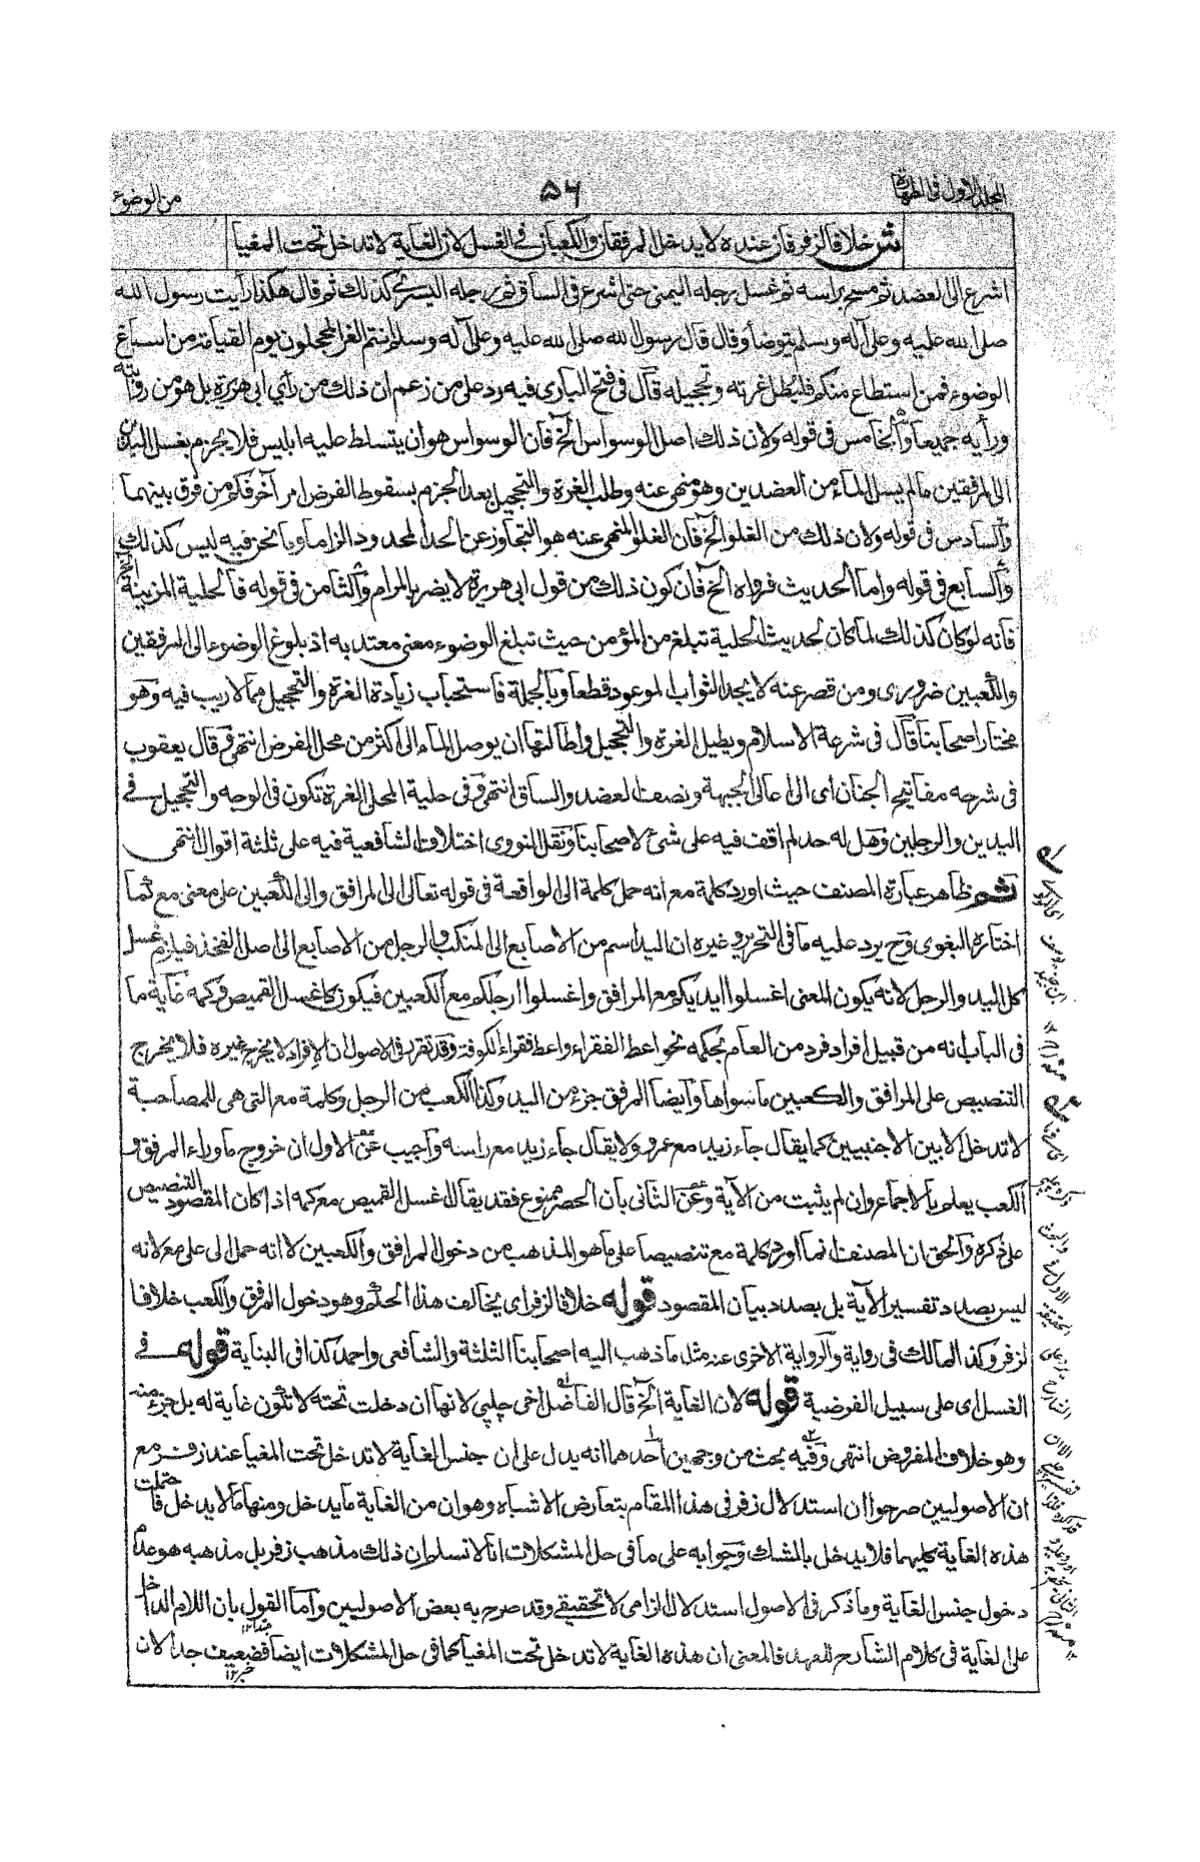 المجلد الاول فى الطهارة
٥٦
من الوضوء
ش خلافا لزفر فان عنده لا يدخل المرفقان والكعبان فى الغسل لان الغاية لا تدخل تحت المغيا
اشرع الى العضد ثم مسح براسه ثم غسل برجله اليمنى حتى اشرع فى الساق ثم رجله اليسرى كذلك ثم قال هكذا رأيت رسول الله
صلى الله عليه وعلى آله وسلم يتوضأ وقال قال رسول الله صلى الله عليه وعلى آله وسلم انتم الغر المحجلون يوم القيامة من اسباغ
الوضوء فمن استطاع منكم فليطل غرته وتحجيله قال فى فتح البارى فيه رد على من زعم ان ذلك من رأي ابى هريرة بل هو من روايته
ورأيه جميعا والخامس فى قوله ولان ذلك اصل الوسواس الخ فان الوسواس هو ان يتسلط عليه ابليس فلا يجزم بغسل اليدين
الى المرفقين مالم يسل الماء من العضدين وهو منهى عنه وطلب الغرة والتحجيل بعد الجزم بسقوط الفرض امر آخر فكم من فرق بينهما
والسادس فى قوله ولان ذلك من الغلو الخ فان الغلو المنهى عنه هو التجاوز عن الحد المحدود الزاما وما نحن فيه ليس كذلك
والسابع فى قوله واما الحديث فرواه الخ فان كون ذلك من قول ابى هريرة لا يضر بالمرام والثامن فى قوله فالحلية المزينة الخ
فانه لو كان كذلك لما كان لحديث الحلية تبلغ من المؤمن حيث تبلغ الوضوء معنى معتد به اذ بلوغ الوضوء الى المرفقين
والكعبين ضرورى ومن قصر عنه لا يجد الثواب الموعود قطعا وبالجملة فاستحباب زيادة الغرة والتحجيل مما لا ريب فيه وهو
مختار اصحابنا قال فى شرعة الاسلام ويطيل الغرة والتحجيل واطالتها ان يوصل الماء الى اكثر من محل الفرض انتهى وقال يعقوب
فى شرحه مفاتيح الجنان اى الى اعالى الجبهة ونصف العضد والساق انتهى وفى حلية المحلى الغرة تكون فى الوجه والتحجيل فى
اليدين والرجلين وهل له حد لم اقف فيه على شئ لاصحابنا ونقل النووى اختلاف الشافعية فيه على ثلثة اقوال انتهى
ثم ظاهر عبارة المصنف حيث اورد كلمة مع انه حمل كلمة الى الواقعة فى قوله تعالى الى المرافق والى الكعبين على معنى مع كما
اختاره البغوى وح يرد عليه ما فى التحرير وغيره ان اليد اسم من الاصابع الى المنكب والرجل من الاصابع الى اصل الفخذ فيلزم غسل
كل اليد والرجل لانه يكون المعنى اغسلوا ايديكم مع المرافق واغسلوا ارجلكم مع الكعبين فيكون كاغسل القميص وكمه غاية ما
فى الباب انه من قبيل افراد فرد من العام بحكمه نحو اعط الفقراء واعط فقراء الكوفة وقد تقرر فى الاصول ان الافراد لا يخرج غيره فلا يخرج
التنصيص على المرافق والكعبين ما سواها وايضا المرفق جزء من اليد وكذا الكعب من الرجل وكلمة مع التى هى للمصاحبة
لا تدخل الا بين الاجنبيين كما يقال جاء زيد مع عمرو ولا يقال جاء زيد مع راسه واجيب عن الاول ان خروج ما وراء المرفق و
الكعب يعلم بالاجماع وان لم يثبت من الآية وعن الثانى بان الحصر ممنوع فقد يقال اغسل القميص مع كمه اذا كان المقصود التنصيص
على ذكره والحق ان المصنف انما اورد كلمة مع تنصيصا على ما هو المذهب من دخول المرافق والكعبين لا انه حمل الى على مع لانه
ليس بصدد تفسير الآية بل بصدد بيان المقصود قوله خلافا لزفر اى يخالف هذا الحكم وهو دخول المرفق والكعب خلافا
لزفر وكذا لمالك فى رواية والرواية الاخرى عنه مثل ما ذهب اليه اصحابنا الثلثة والشافعى واحمد كذا فى البناية قوله فى
الغسل اى على سبيل الفرضية قوله لان الغاية الخ قال الفاضل اخى چلپى لانها ان دخلت تحته لا تكون غاية له بل جزء منه
وهو خلاف المفروض انتهى وفيه بحث من وجهين احدهما انه يدل على ان جنس الغاية لا تدخل تحت المغيا عند زفر مع
ان الاصوليين صرحوا ان استدلال زفر فى هذا المقام بتعارض الاشباه وهو ان من الغاية ما يدخل ومنها ما لا يدخل فاحتملت
هذه الغاية كليهما فلا يدخل بالشك وجوابه على ما فى حل المشكلات انا لا نسلم ان ذلك مذهب زفر بل مذهبه هو عدم
دخول جنس الغاية وما ذكر فى الاصول استدلال الزامى لا تحقيقى وقد صرح به بعض الاصوليين واما القول بان اللام الداخل
على الغاية فى كلام الشارح للعهد فالمعنى ان هذه الغاية لا تدخل تحت المغيا كما فى حل المشكلات ايضا فضعيف جدا لان